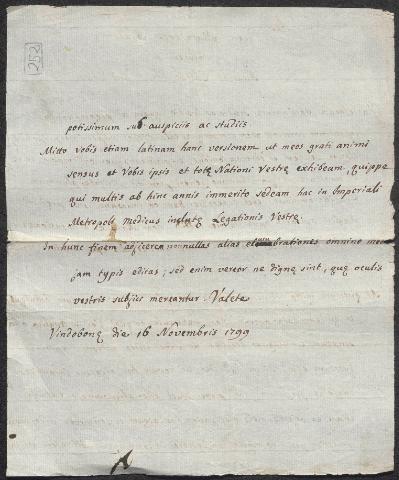 252
potissimum sub auspiciis ac studiis
Mitto Vobis etiam latinam hanc versionem ut meos grati animi
sensus et Vobis ipsis et totę Nationi Vestrę exhibeam, quippe
qui multis ab hinc annis immerito sedeam hac in Imperiali
Metropoli Medicus inclutę Legationis Vestrę.
In hunc finem adjicerem nonnullas alias omnino meas
jam typis editas; sed enim vereor ne dignę sint, quę oculis
vestris subjici mereantur. Valete
Vindobonę die 16 Novembris 1799